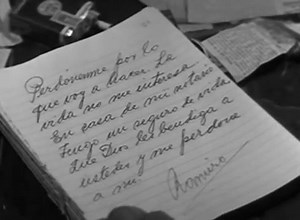 Perdónenme por lo
que voy a hacer. La
vida no me interesa
En casa de mi notario
Tengo un seguro de vida
Que Dios les bendiga a
ustedes y me perdone
a mi.
Ramiro